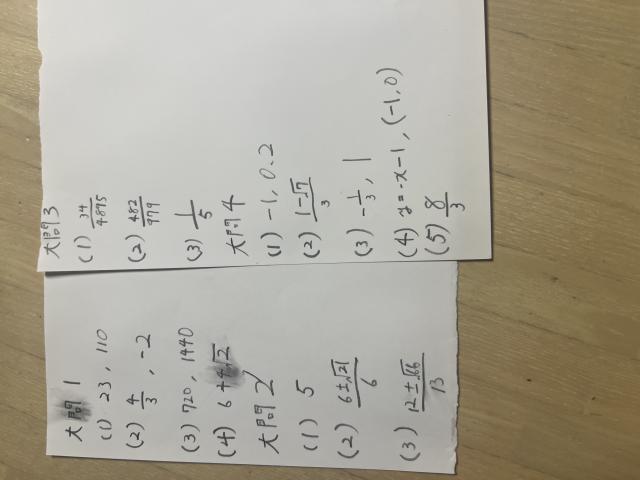 大問1
(1) 23, 110
(2) 4/3, -2
(3) 720, 1440
(4) 6+4√2
大問2
(1) 5
(2) (6±√21)/6
(3) (12±√66)/13
大問3
(1) 34/4895
(2) 482/979
(3) 1/5
大問4
(1) -1, 0.2
(2) (1-√7)/3
(3) -1/3, 1
(4) y=-x-1, (-1,0)
(5) 8/3